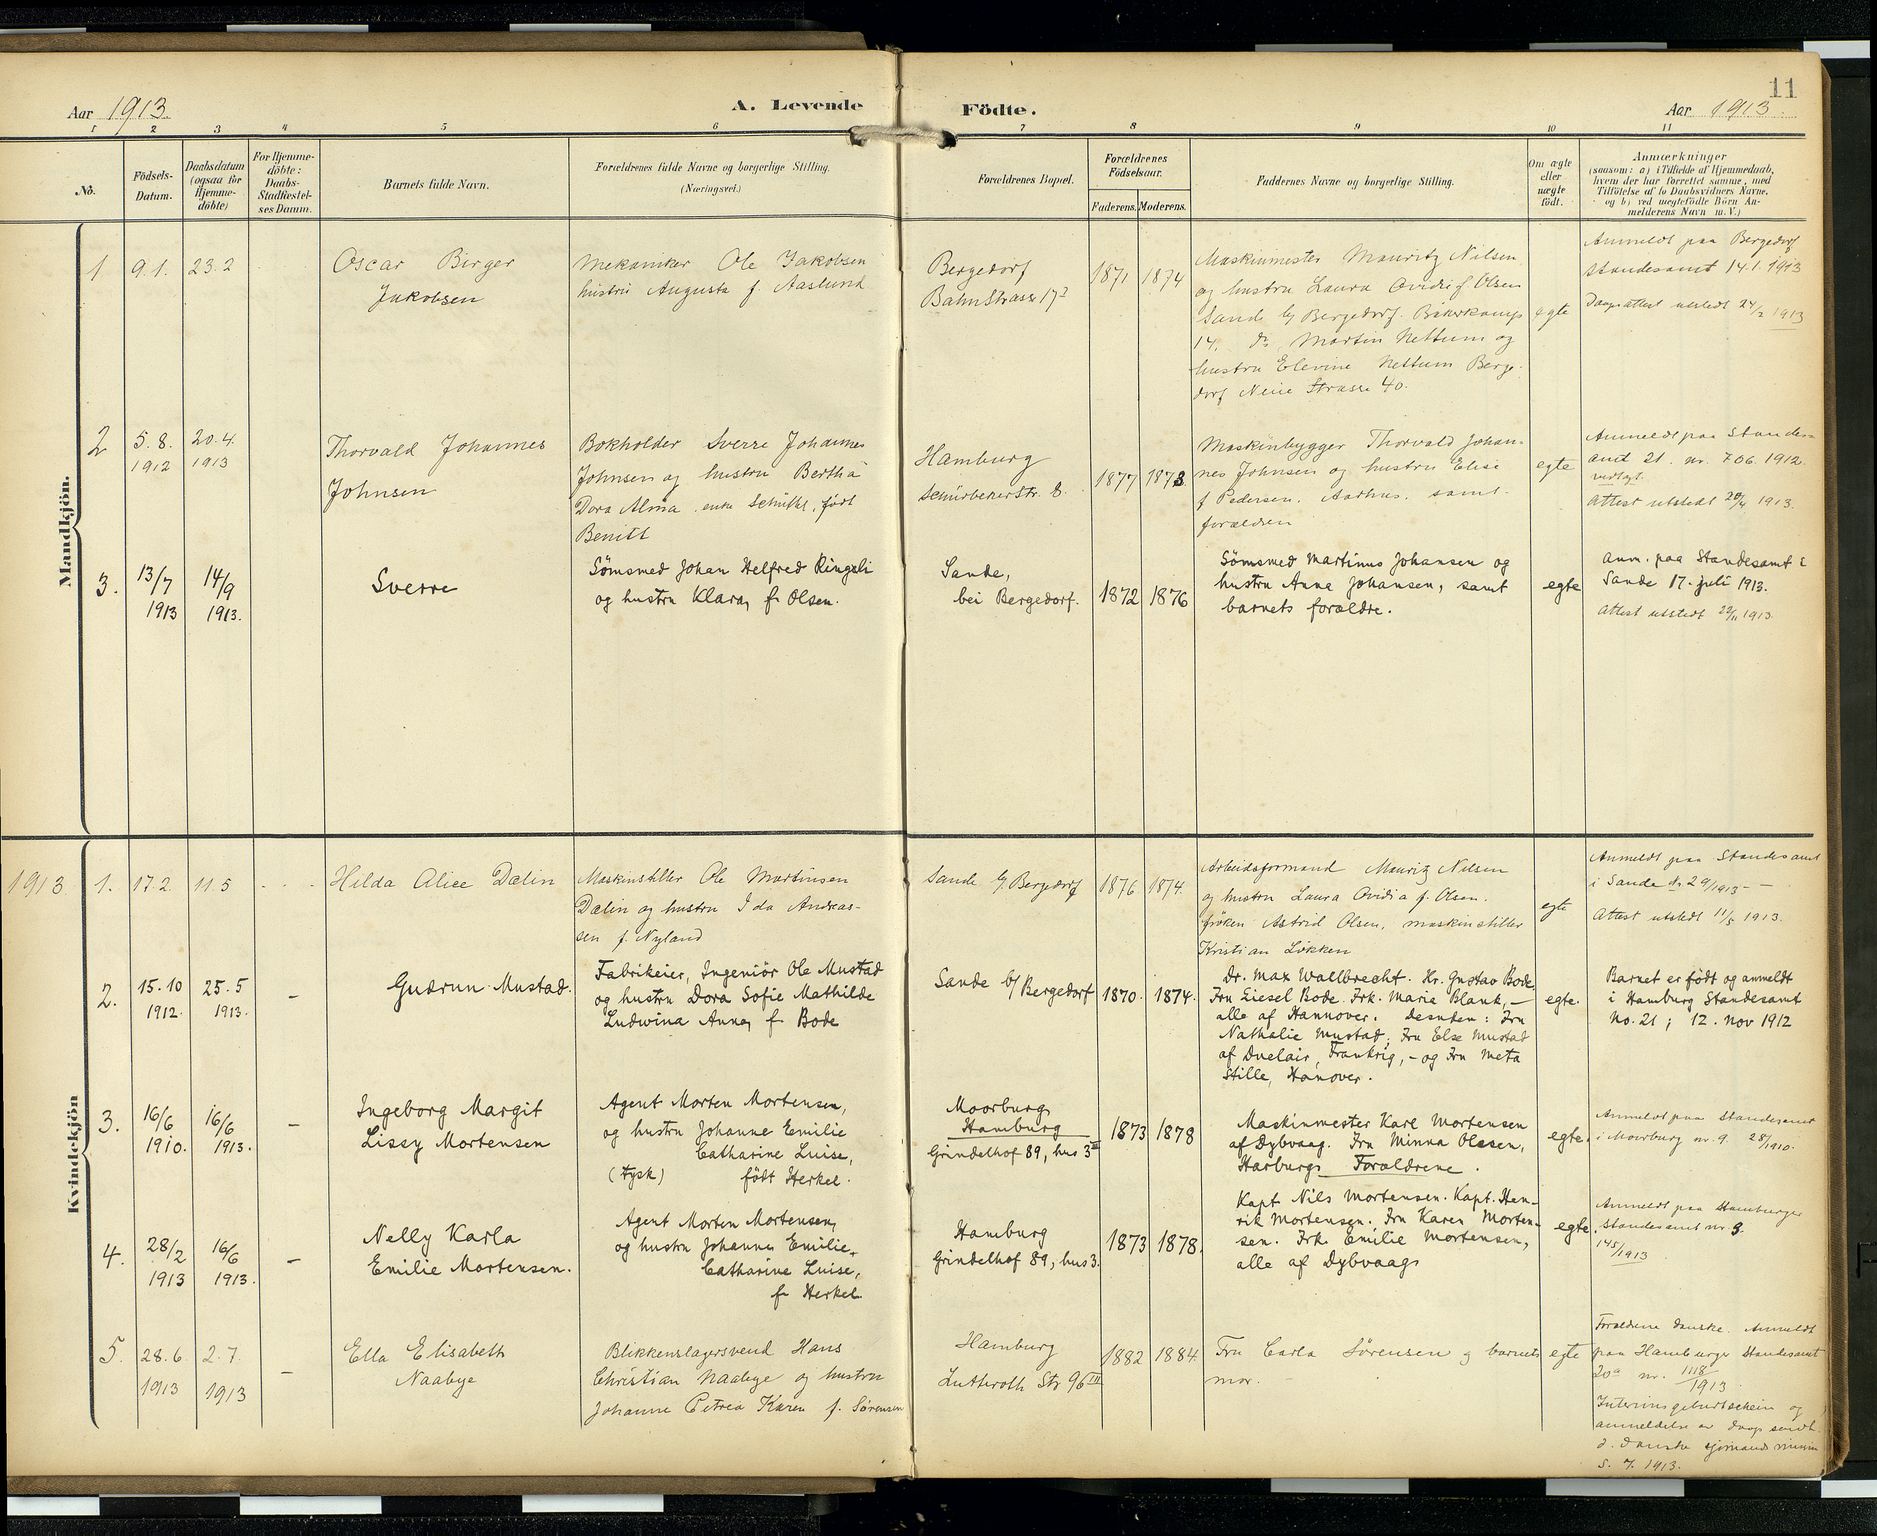 11
Aar 1913.
A. Levende Födte.
Aar 1913
1 2 3 4 5 6 7 8 9 10 11
No.
Födsels-
Datum.
Daabsdatum
(ogsaa for
Hjemme-
döbte)
For Hjemme-
döbte:
Daabs-
Stadfæstel-
ses Datum.
Barnets fulde Navn.
Forældrenes fulde Navne og borgerlige Stilling.
(Næringsvei.)
Forældrenes Bopæl.
Forældrenes
Födselsaar.
Faderens. Moderens.
Faddernes Navne og borgerlige Stilling.
Om ægte
eller
uægte
födt.
Anmærkninger
(saasom: a) i Tilfælde af Hjemmedaab,
hvem der har forrettet samme, med
Tilföielse af to Daabsvidners Navne,
og b) ved uægtefödte Börn An-
melderens Navn m. V.)
Mandkjön.
1
9.1.
23.2
Oscar Birger
Jakobsen
Mekaniker Ole Jakobsen
hustru Augusta f. Aaslund
Bergedorf
Bahnstrasse 17²
1871
1874
Maskinmester Mauritz Nilsen
og hustru Laura Ovidie f Olsen
Sande b/ Bergedorf.
14. do Martin Nettum og
hustru Elevine Nettum Berge-
dorf Neue Strasse 40.
egte
Anmeldt paa Bergedorf
standesamt 14.1.1913
Daapsattest utstedt 24/2 1913
2
5.8.
1912
20.4.
1913
Thorvald Johannes
Johnsen
Bokholder Sverre Johannes
Johnsen og hustru Bertha
Dora Alma enke Schütke, født
Benitt
Hamburg
Schürbekerstr. 8.
1877
1873
Maskinbygger Thorvald Johan-
nes Johnsen og hustru Elise
f Pedersen. Aarhus. samt
forældren
egte
Anmeldt paa Standes-
amt 21. nr. 706. 1912.
vedlagt.
Attest utstedt 20/4 1913.
3.
13/7
1913
14/9
1913.
Sverre
Sömsmed Johan Helfred Ringeli
og hustru Klara, f. Olsen.
Sande,
bei Bergedorf.
1872
1876
Sömsmed Martinus Johansen og
hustru Anna Johansen, samt
barnets forældre.
egte
anm. paa Standesamt i
Sande 17. juli 1913.
Attest utstedt 22/11 1913.
Kvindekjön
1913
1.
17.2.
11.5
Hilda Alice Dælin
Maskinstiller Ole Martinsen
Dælin og hustru Ida Andreas-
sen f. Nyland
Sande b/ Bergedorf
1876
1874.
Arbeidsformand Mauritz Nilsen
og hustru Laura Ovidia f. Olsen.
frøken Astrid Olsen, maskinstiller
Kristian Løkken
egte
Anmeldt paa Standesamt
i Sande Nr. 29/1913 - -
Attest utstedt 11/5 1913.
2.
15.10
1912.
25.5
1913.
–
Gudrun Mustad.
Fabrikeier, Ingeniör Ole Mustad
og hustru Dora Sofie Mathilde
Ludwina Anna, f. Bode
Sande b/ Bergedorf
1870.
1874.
Dr. Max Wallbrecht. Hr. Gustav Bode
Fru Liesel Bode. Frk. Marie Blank, –
alle af Hannover. desuden: Fru
Nathalie Mustad, Fru Else Mustad
af Duclair, Frankrig, – og Fru Meta
Stille, Hanover.
egte.
Barnet er født og anmeldt
i Hamburg Standesamt
No. 21; 12. Nov 1912
3.
16/6
1910.
16/6
1913.
–
Ingeborg Margit
Lissy Mortensen
Agent Morten Mortensen,
og hustru Johanne Emilie
Catharine Luise,
(tysk) født Herkel.
Moorburg,
Hamburg
Grindelhof 89, hus 3 III
1873
1878
Maskinmester Karl Mortensen
af Dybvaag. Fru Minna Olesen,
Harburg, Forældrene.
egte.
Anmeldt paa Standesamt
i Moorburg nr. 9. 28/1910.
4.
28/2
1913
16/6
1913.
–
Nelly Karla
Emilie Mortensen.
Agent Morten Mortensen,
og hustru Johanne Emilie,
Catharine Luise,
f. Herkel
Hamburg
Grindelhof 89, hus 3.
1873
1878.
Kapt Nils Mortensen. Kapt. Hen-
rik Mortensen. Fru Karen Morten-
sen. Frk. Emilie Mortensen,
alle af Dybvaag
egte.
Anmeldt paa Hamburger
Standesamt nr. 3.
145/1913
5.
28.6.
1913
2.7.
1913
–
Ella Elisabeth
Naabye
Blikkenslagersvend Hans
Christian Naabye og hustru
Johanne Petrea Karen f. Sørensen
Hamburg
Lutteroth Str 96 III
1882
1884.
Fru Carla Sörensen og barnets
mor.
egte
Forældrene danske. Anmeldt
paa Hamburger Standesamt
20a nr. 1118/1913.
Interimsgeburtsschein og
anmeldelse av daap sendt
d. danske sjømandsmission
5. 7. 1913.